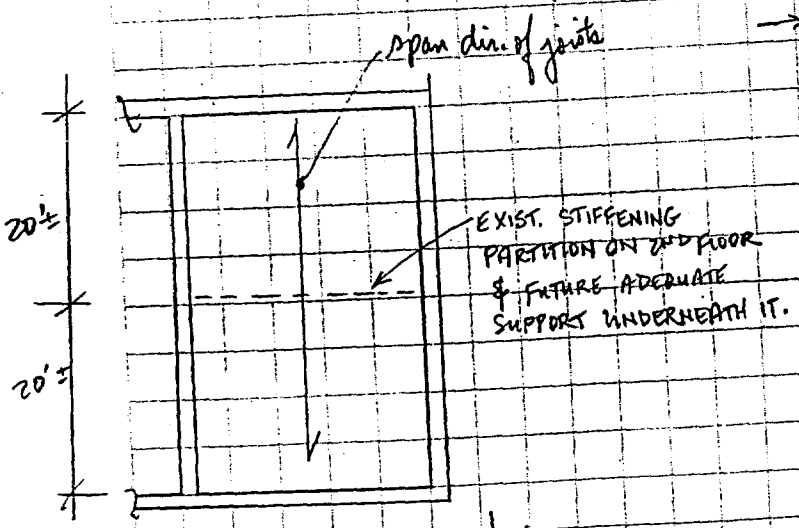 span dir. of joists
20'±
EXIST. STIFFENING
PARTITION ON 2ND FLOOR
& FUTURE ADEQUATE
SUPPORT UNDERNEATH IT.
20'±